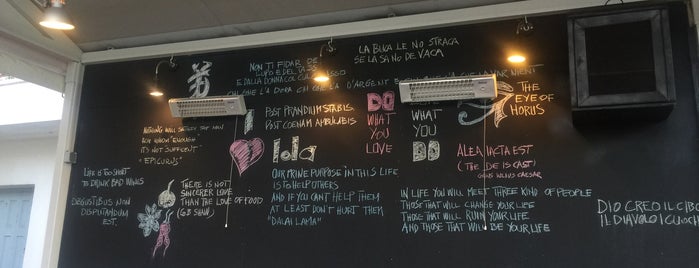 NON TI FIDAR DE
LUPO E DEL TASSO
E DALLA DONNA COL CULO BASSO
LA BUCA LE NO STRACA
SE LA SA NO DE VACA
POST PRANDIUM STABIS
POST COENAM AMBULABIS
DO
WHAT
YOU
LOVE
WHAT
YOU
DO
THE
EYE OF
HORUS
NOTHING WILL SATISFY THE MAN
FOR WHOM "ENOUGH
IT'S NOT SUFFICENT"
"EPICURUS"
lola
ALEA IACTA EST
(THE DIE IS CAST)
GAIUS IULIUS CAESAR
LIFE IS TOO SHORT
TO DRINK BAD WINES
DEGUSTIBUS NON
DISPUTANDUM
EST.
THERE IS NOT
SINCERER LOVE
THAN THE LOVE OF FOOD
(G.B SHAW)
OUR PRIME PURPOSE IN THIS LIFE
IS TO HELP OTHERS
AND IF YOU CAN'T HELP THEM
AT LEAST DON'T HURT THEM
"DALAI LAMA"
IN LIFE YOU WILL MEET THREE KIND OF PEOPLE
THOSE THAT WILL CHANGE YOUR LIFE
THOSE THAT WILL RUIN YOUR LIFE
AND THOSE THAT WILL BE YOUR LIFE
DIO CREO IL CIBO
IL DIAVOLO I CUOCHI